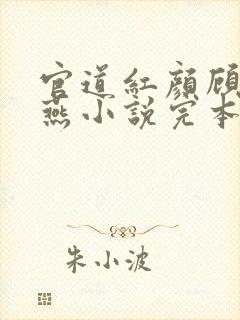 官道紅顏顧
燕小說完本
朱小波